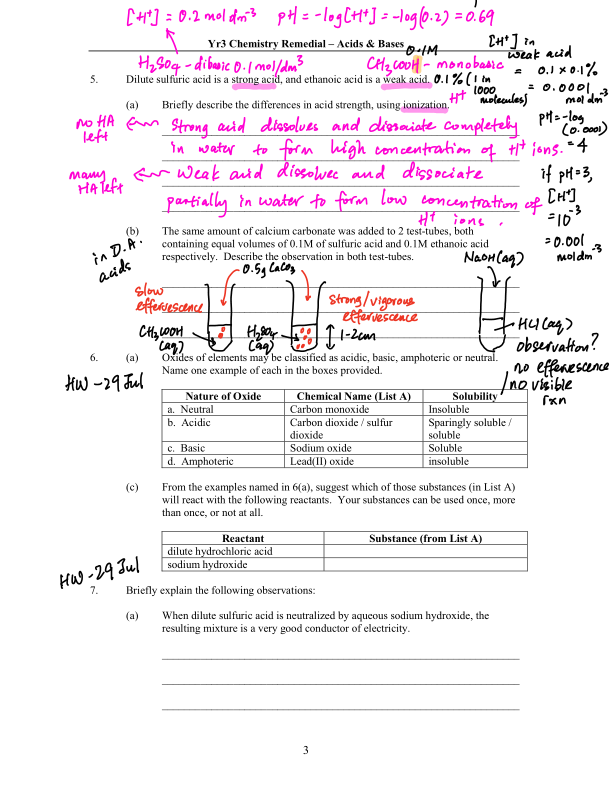 [H⁺] = 0.2 mol dm⁻³ pH = -log[H⁺] = -log(0.2) = 0.69
Yr3 Chemistry Remedial – Acids & Bases
H₂SO₄ - dibasic 0.1 mol/dm³
0.1M
CH₃COOH - monobasic
5. Dilute sulfuric acid is a strong acid, and ethanoic acid is a weak acid.
0.1% (1 in
1000
molecules)
[H⁺] in
weak acid
= 0.1 x 0.1%
= 0.0001
mol dm⁻³
pH = -log
(0.0001)
= 4
if pH = 3,
[H⁺]
= 10⁻³
= 0.001
mol dm⁻³
(a) Briefly describe the differences in acid strength, using ionization.
H⁺
no HA
left
Strong acid dissolves and dissociate completely
in water to form high concentration of H⁺ ions.
many
HA left
Weak acid dissolves and dissociate
partially in water to form low concentration of
H⁺ ions.
(b) The same amount of calcium carbonate was added to 2 test-tubes, both
containing equal volumes of 0.1M of sulfuric acid and 0.1M ethanoic acid
respectively. Describe the observation in both test-tubes.
in D.A.
acids
0.5g CaCO₃
NaOH (aq)
slow
effervescence
Strong/vigorous
effervescence
CH₃COOH
(aq)
H₂SO₄
(aq)
1-2cm
HCl (aq)
observation?
no effervescence
/no visible
rxn
6. (a) Oxides of elements may be classified as acidic, basic, amphoteric or neutral.
Name one example of each in the boxes provided.
HW - 29 Jul
Nature of Oxide Chemical Name (List A) Solubility
a. Neutral Carbon monoxide Insoluble
b. Acidic Carbon dioxide / sulfur Sparingly soluble /
dioxide soluble
c. Basic Sodium oxide Soluble
d. Amphoteric Lead(II) oxide insoluble
(c) From the examples named in 6(a), suggest which of those substances (in List A)
will react with the following reactants. Your substances can be used once, more
than once, or not at all.
Reactant Substance (from List A)
dilute hydrochloric acid
sodium hydroxide
HW - 29 Jul
7. Briefly explain the following observations:
(a) When dilute sulfuric acid is neutralized by aqueous sodium hydroxide, the
resulting mixture is a very good conductor of electricity.
3